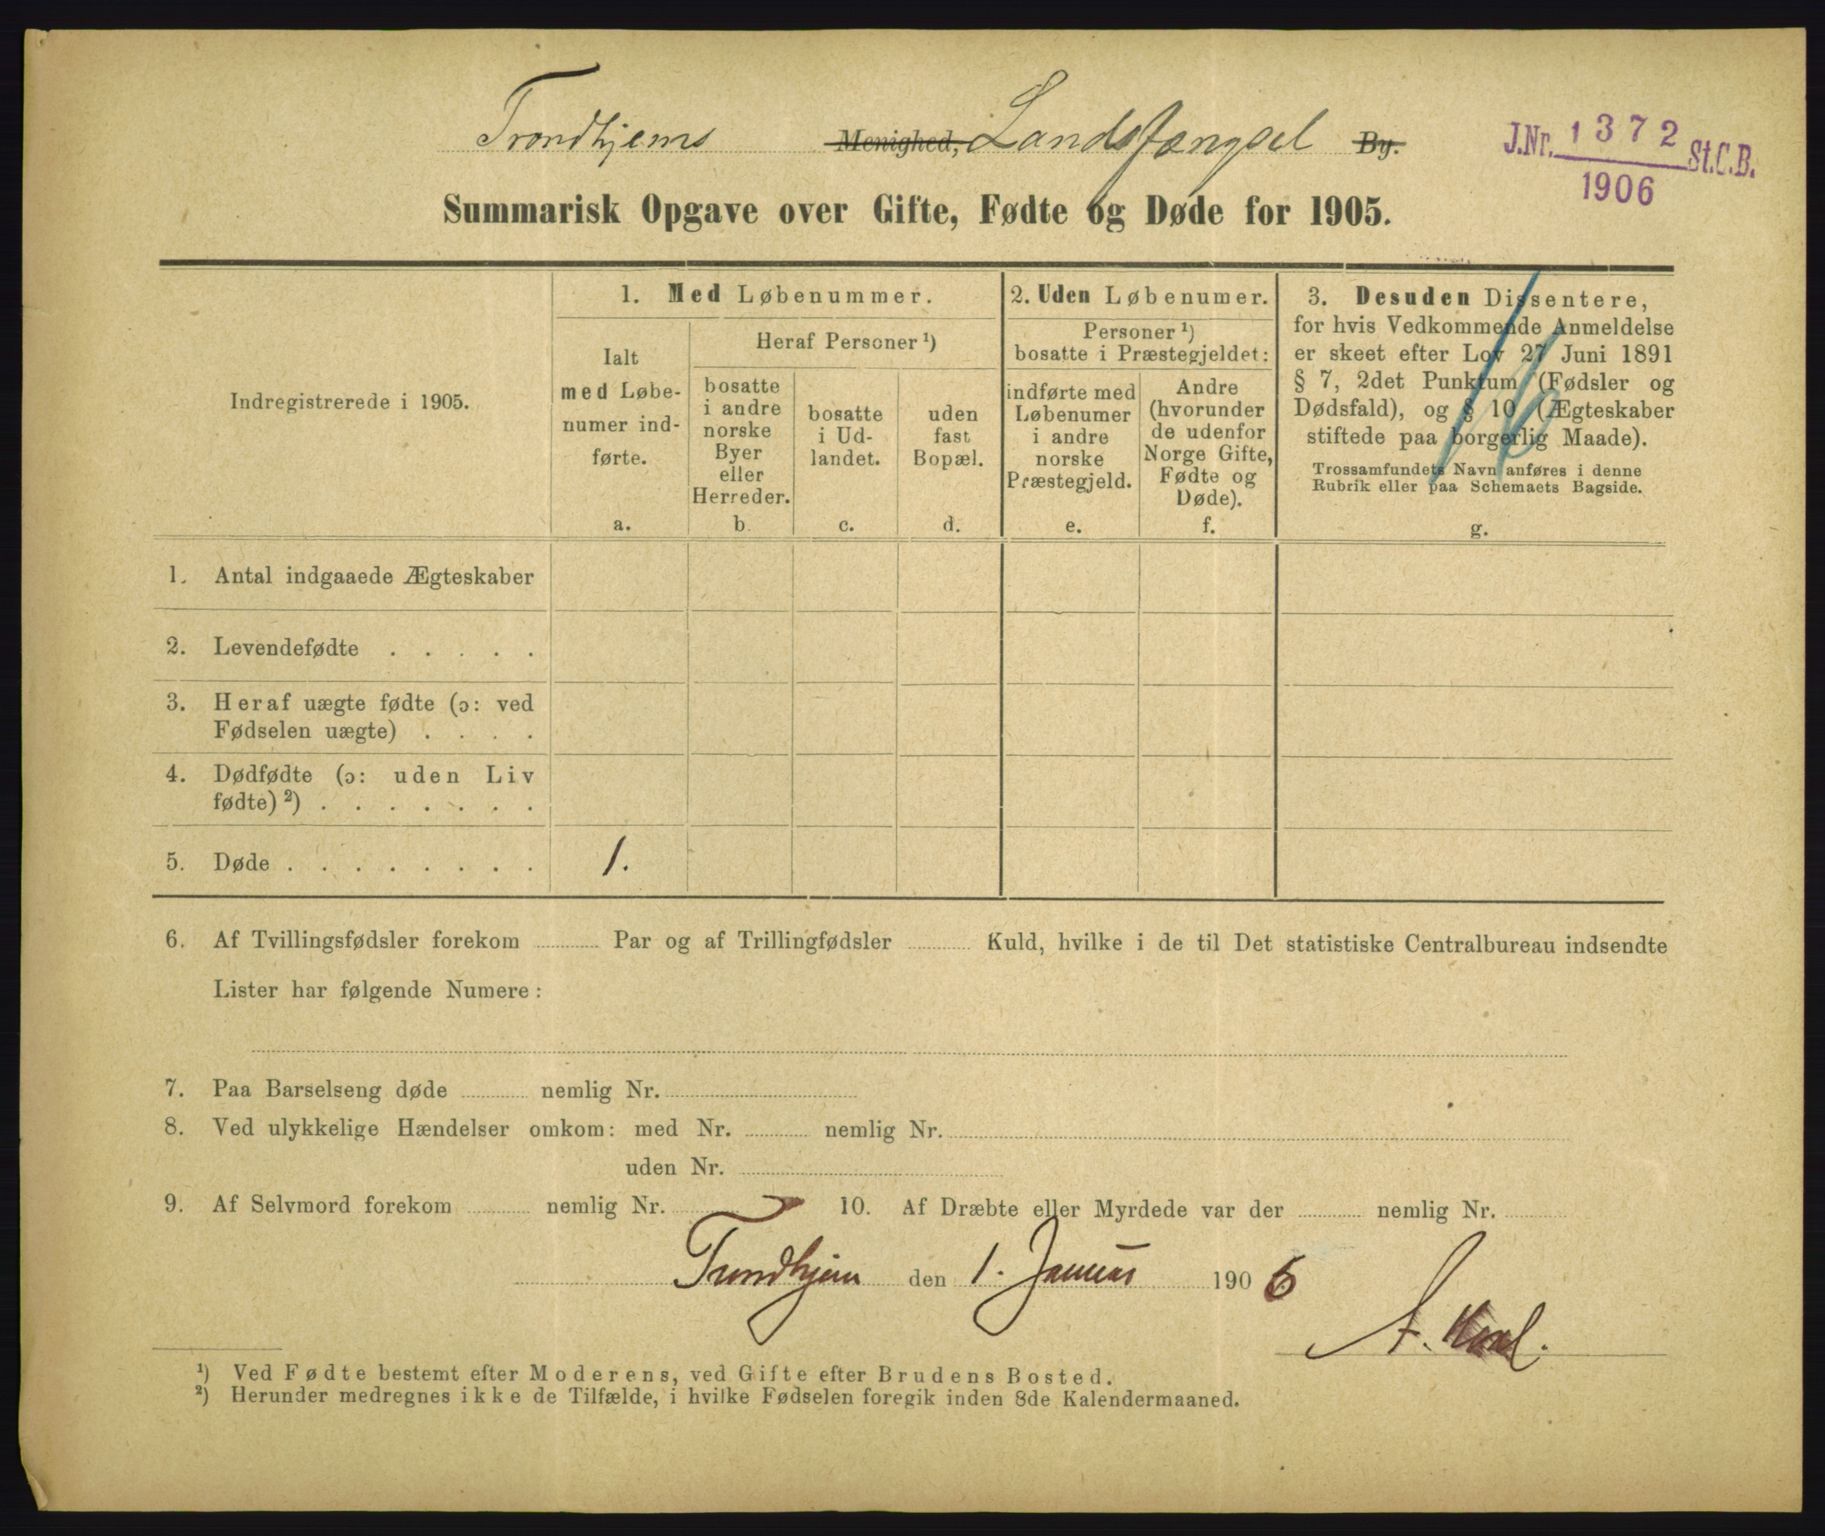 Trondhjems Menighed, Landsfængsel By.
J.Nr. 1372 St.C.B.
1906
Summarisk Opgave over Gifte, Fødte og Døde for 1905.
Indregistrerede i 1905.
1. Med Løbenummer.
Ialt
med Løbe-
numer ind-
førte.
a.
Heraf Personer ¹)
bosatte
i andre
norske
Byer
eller
Herreder.
b.
bosatte
i Ud-
landet.
c.
uden
fast
Bopæl.
d.
2. Uden Løbenumer.
Personer ¹)
bosatte i Præstegjeldet:
indførte med
Løbenumer
i andre
norske
Præstegjeld.
e.
Andre
(hvorunder
de udenfor
Norge Gifte,
Fødte og
Døde).
f.
3. Desuden Dissentere,
for hvis Vedkommende Anmeldelse
er skeet efter Lov 27 Juni 1891
§ 7, 2det Punktum (Fødsler og
Dødsfald), og § 10 (Ægteskaber
stiftede paa borgerlig Maade).
Trossamfundets Navn anføres i denne
Rubrik eller paa Schemaets Bagside.
g.
1. Antal indgaaede Ægteskaber
2. Levendefødte . . . . .
3. Heraf uægte fødte (ɔ: ved
Fødselen uægte) . . . .
4. Dødfødte (ɔ: uden Liv
fødte) ²) . . . . . . .
5. Døde . . . . . . . . 1.
6. Af Tvillingsfødsler forekom Par og af Trillingfødsler Kuld, hvilke i de til Det statistiske Centralbureau indsendte
Lister har følgende Numere:
7. Paa Barselseng døde nemlig Nr.
8. Ved ulykkelige Hændelser omkom: med Nr. nemlig Nr.
uden Nr.
9. Af Selvmord forekom nemlig Nr. 10. Af Dræbte eller Myrdede var der nemlig Nr.
Trondhjem den 1. Januar 1906
A.
¹) Ved Fødte bestemt efter Moderens, ved Gifte efter Brudens Bosted.
²) Herunder medregnes ikke de Tilfælde, i hvilke Fødselen foregik inden 8de Kalendermaaned.